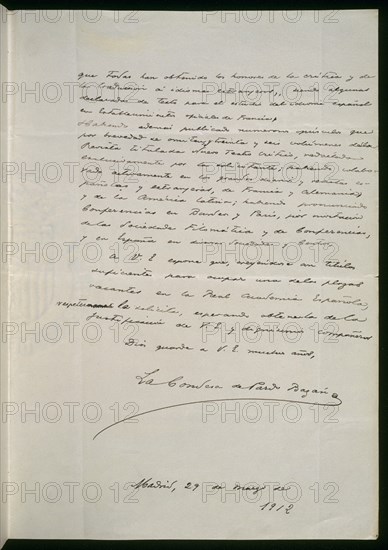 que todas han obtenido los honores de la crítica y de
la traducción a idiomas extranjeros, siendo algunas
declaradas de texto para el estudio del idioma español
en establecimientos oficiales de Francia;
Habiendo además publicado numerosos opúsculos que
por brevedad se omiten; treinta y seis volúmenes de la
Revista titulada Nuevo Teatro Crítico, redactada
exclusivamente por la solicitante; habiendo colabo-
rado activamente en los
y extranjeras, de Francia y Alemania,
y de la América latina; habiendo pronunciado
Conferencias en Burdeos y París, por invitación
de las Sociedades Filomática y de Conferencias,
y en España en diversas Sociedades y
A V. E. expone que, creyéndose con títulos
suficientes para ocupar una de las plazas
vacantes en la Real Academia Española,
respetuosamente la solicita, esperando obtenerla de la
justificación de V. E. y dignísimos compañeros
Dios guarde a V. E. muchos años,
La Condesa de Pardo Bazán
Madrid, 29 de marzo de
1912
PHOTO 12